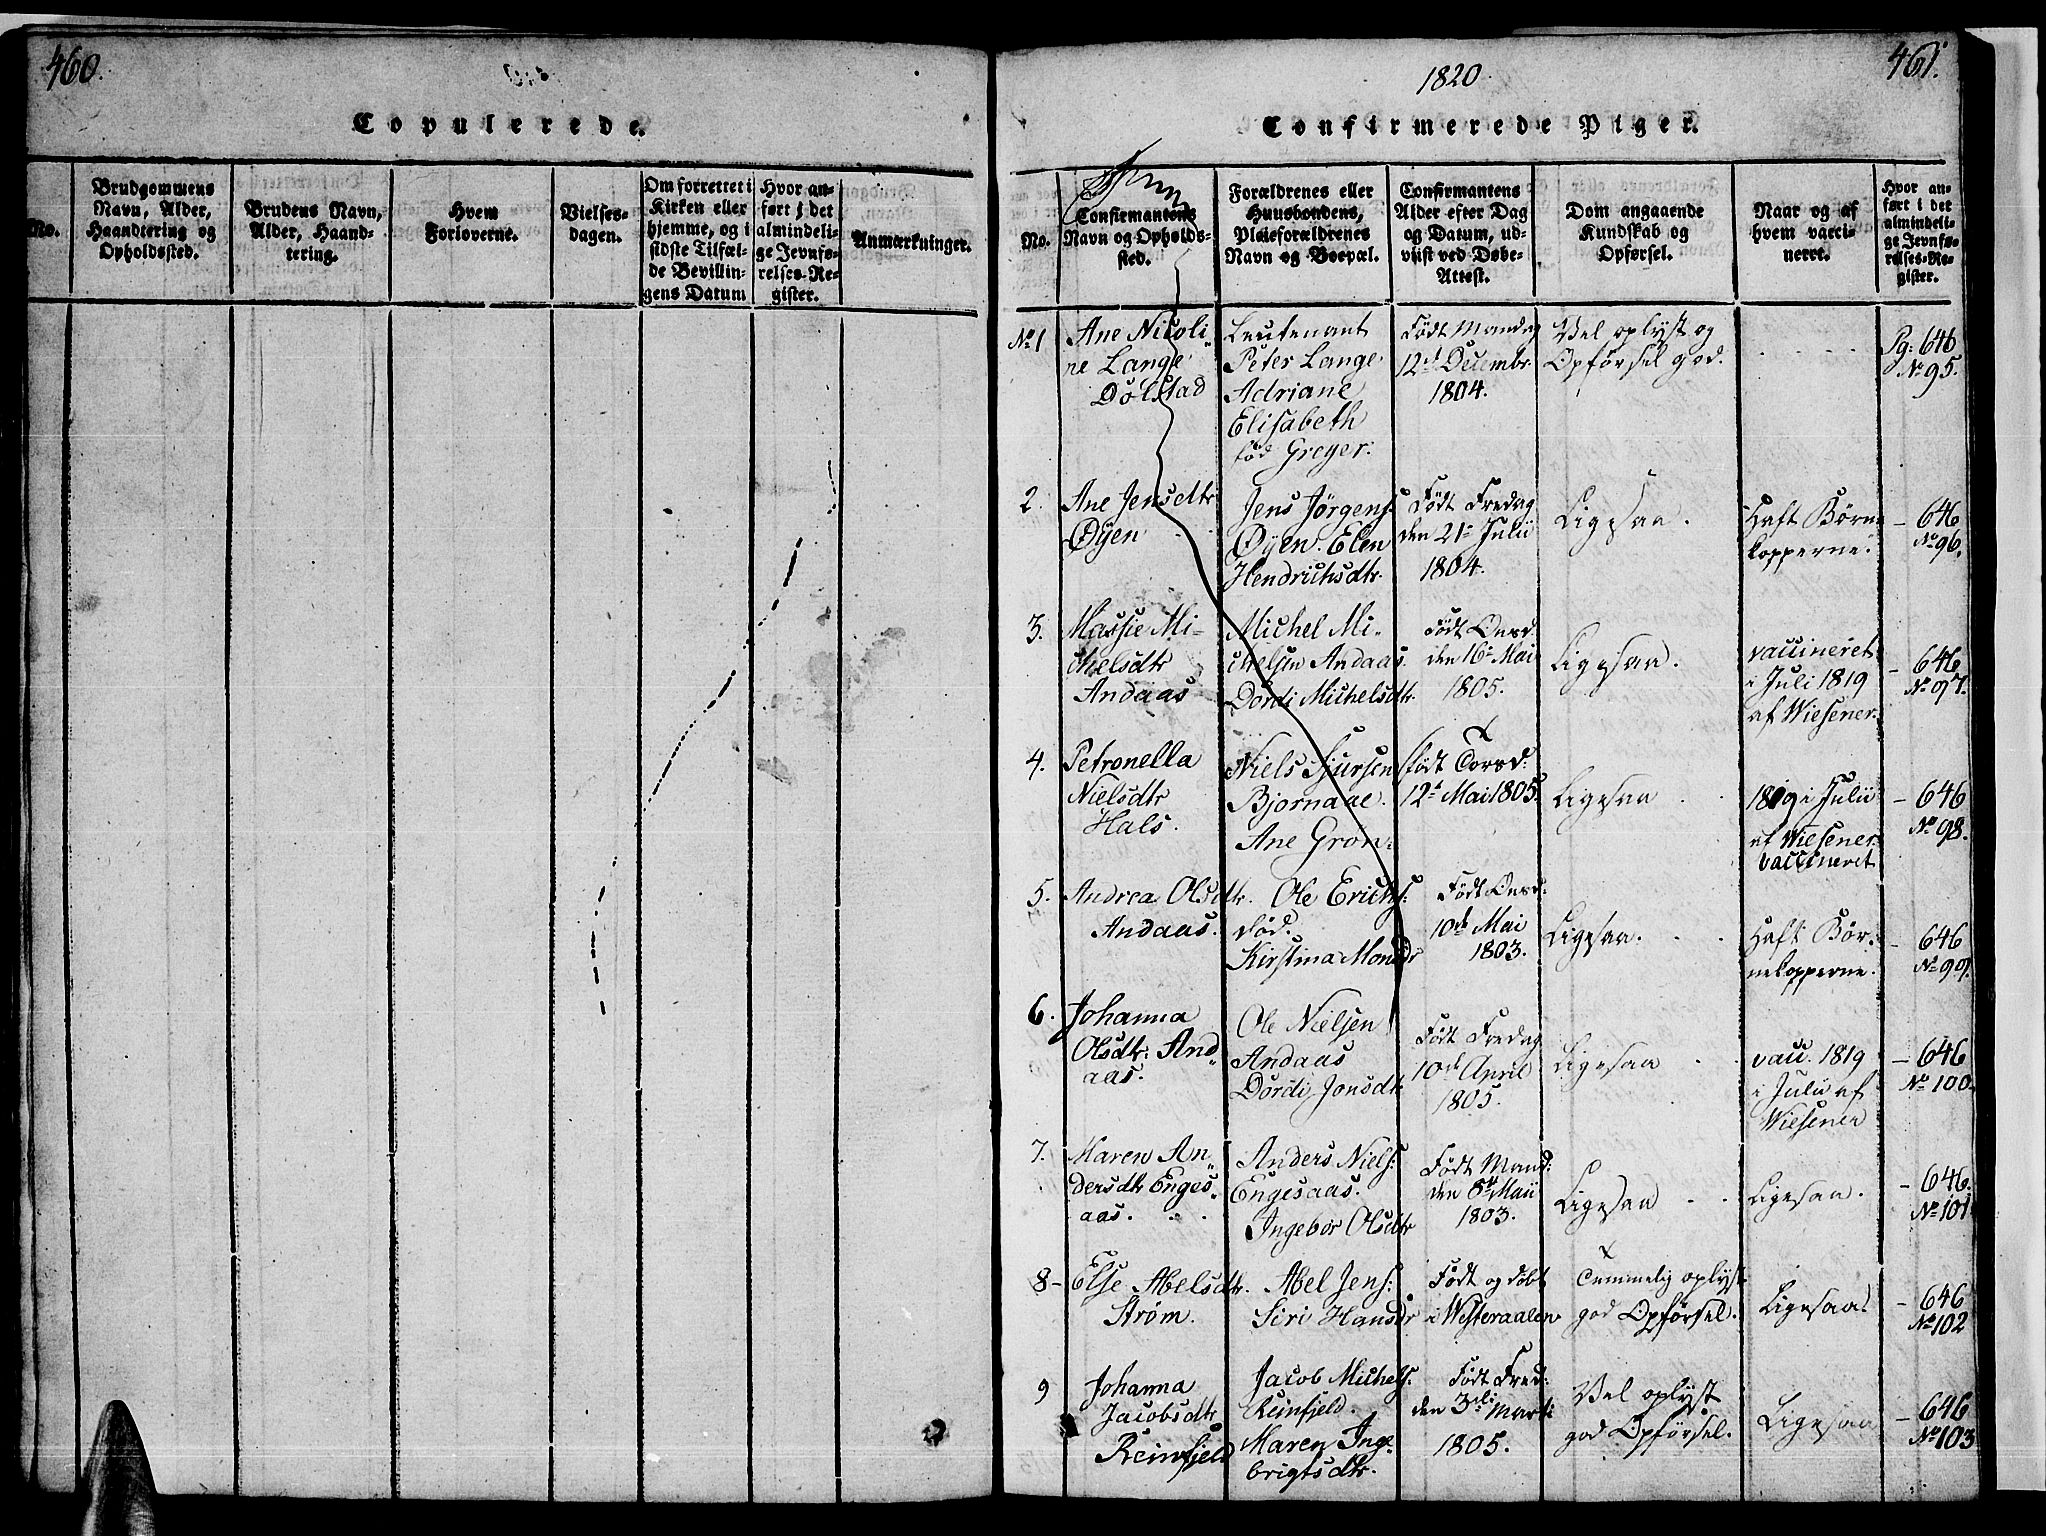 460.
Copulerede.
No.
Brudgommens
Navn, Alder,
Haandtering og
Opholdssted.
Brudens Navn,
Alder, Haand-
tering.
Hvem
Forloverne.
Vielses-
dagen.
Om forrettet i
Kirken eller
hjemme, og i
sidste Tilfæl-
de Bevillin-
gens Datum
Hvor an-
ført i det
almindeli-
ge Jevnfø-
relses-Re-
gister.
Anmærkninger.
461.
1820
Confirmerede Piger.
No.
Confirmantens
Navn og Opholds-
sted.
Forældrenes eller
Huusbondens,
Pleieforældrenes
Navn og Boepæl.
Confirmantens
Alder efter Dag
og Datum, ud-
viist ved Døbe-
Attest.
Dom angaaende
Kundskab og
Opførsel.
Naar og af
hvem vacci-
neret.
Hvor an-
ført i det
almindeli-
ge Jevnfø-
relses-Re-
gister.
No 1
Ane Nicoli-
ne Lange
Dolstad
Leutenant
Peter Lange
Adriane
Elisabeth
fød Greger.
Født Mandag
12te Decembr
1804.
Vel oplyst og
Opførsel god.
Pg: 646
No 95.
2.
Ane Jensdtr
Øÿen
Jens Jørgens:
Øÿen. Elen
Hendrichsdtr.
Født Fredag
den 21de Julii
1804.
Ligesaa.
Haft Børn
kopperne.
- 646
No 96.
3.
Massie Mi-
chelsdtr
Andaas
Michel Mi-
chelsen Andaas.
Dordi Michelsdtr
Født Onsd.
den 16de Mai
1805.
Ligesaa.
vaccineret
i Juli 1819
af Wiesener.
- 646
No 97.
4.
Petronella
Nielsdtr
Hals.
Niels Sjursen
Bjornaae.
Ane Gron:
født Torsd:
12te Mai 1805.
Ligesaa
1819 i Julii
af Wiesener
vaccineret
- 646
No 98.
5.
Andrea Olsdtr.
Andaas.
Ole Erichs:
død.
Kirstina Monsdr
Født Onsd:
10de Mai
1803.
Ligesaa.
Haft Bør-
nekopperne.
- 646
No 99.
6.
Johanna
Olsdtr: And
aas.
Ole Nielsen
Andaas
Dordi Jonsdtr
Født Fredag
10de April
1805.
Ligesaa
vacc. 1819
i Julii af
Wiesener
- 646
No 100.
7.
Maren An-
dersdtr Enges
aas.
Anders Niels:
Engesaas.
Ingebor Olsdtr
Født Mand:
den 8de Maii
1803.
Ligesaa
Ligesaa.
- 646.
No 101
8-
Else Abelsdtr.
Strøm.
Abel Jens:
Siri Hansdr
Født og døbt
i Westeraalen
Temmelig oplyst
god Opførsel.
Ligesaa.
- 646
No 102
9
Johanna
Jacobsdtr
Reinfjeld
Jacob Michels:
Reinfjeld.
Maren Inge-
brigtsdtr.
Født Fred:
den 3die Marti
1805.
Vel oplyst
god Opførsel.
Ligesaa
- 646
No 103